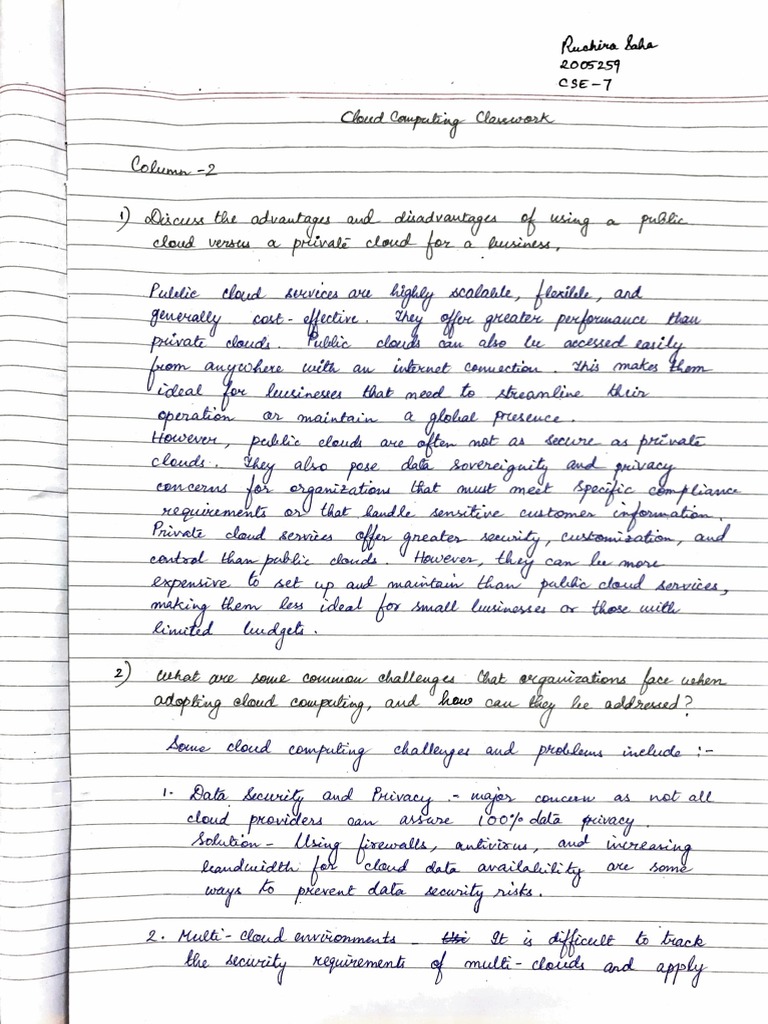 Ruchira Saha
2005259
CSE-7
Cloud Computing Classwork
Column-2
1) Discuss the advantages and disadvantages of using a public
cloud versus a private cloud for a business.
Public cloud services are highly scalable, flexible, and
generally cost-effective. They offer greater performance than
private clouds. Public clouds can also be accessed easily
from anywhere with an internet connection. This makes them
ideal for businesses that need to streamline their
operation or maintain a global presence.
However, public clouds are often not as secure as private
clouds. They also pose data sovereignity and privacy
concerns for organizations that must meet specific compliance
requirements or that handle sensitive customer information.
Private cloud services offer greater security, customization, and
control than public clouds. However, they can be more
expensive to set up and maintain than public cloud services,
making them less ideal for small businesses or those with
limited budgets.
2) What are some common challenges that organizations face when
adopting cloud computing, and how can they be addressed?
Some cloud computing challenges and problems include :-
1. Data Security and Privacy - major concern as not all
cloud providers can assure 100% data privacy.
Solution - Using firewalls, antivirus, and increasing
bandwidth for cloud data availability are some
ways to prevent data security risks.
2. Multi-cloud environments - It is difficult to track
the security requirements of multi-clouds and apply